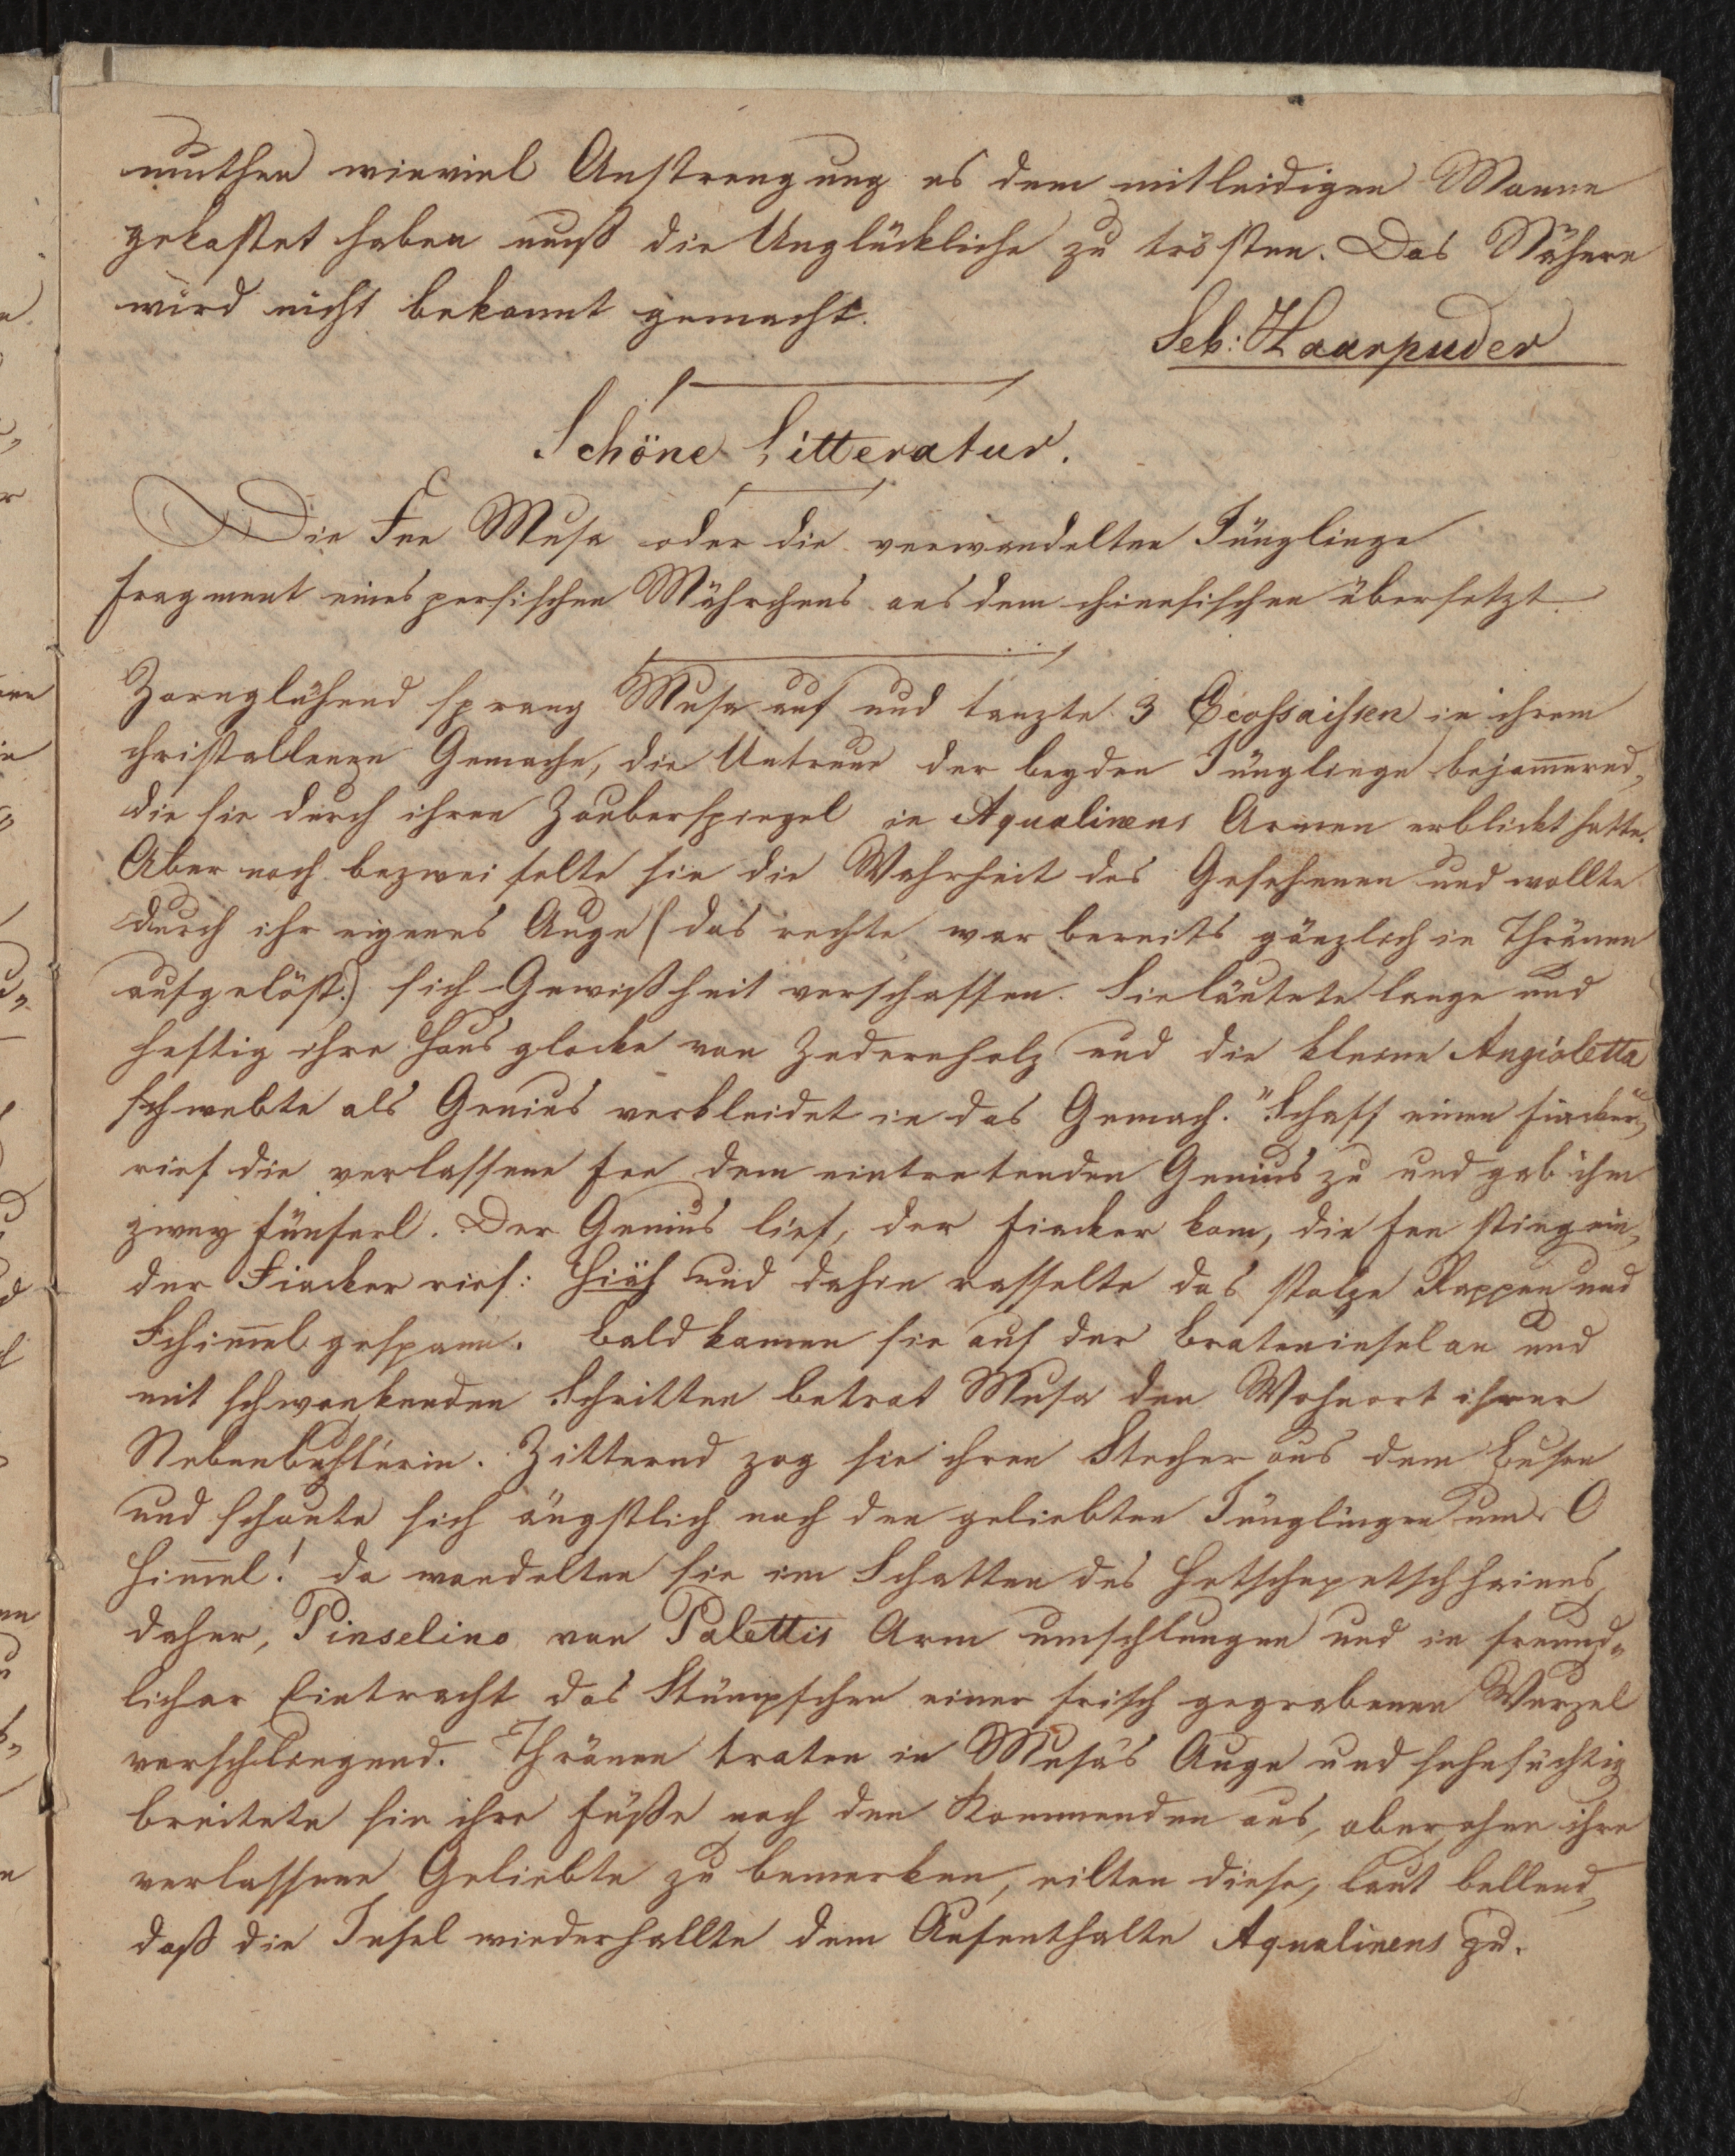 muthen wieviel Anstrengung es dem mitleidigen Manne
gekostet haben muß die Unglückliche zu trösten. Das Nähere
wird nicht bekannt gemacht.
Seb: Haarpuder
Schöne Litteratur.
Die Fee Musa oder die verwandelten Jünglinge
Fragment eines persischen Mährchens aus dem chinesischen übersetzt.
Zornglühend sprang Musa auf und tanzte 3 Ecossaissen in ihrem
christallenen Gemache, die Untreue der beyden Jünglinge bejam̅ernd,
die sie durch ihren Zauberspiegel in Aqualinens Armen erblickt hatte.
Aber noch bezweifelte sie die Wahrheit des Gesehenen und wollte
durch ihr eigenes Auge (das rechte war bereits gänzlich in Thränen
aufgelöst.) sich Gewißheit verschaffen. Sie läutete lange und
heftig ihre Hausglocke von Zedernholz und die kleine Angioletta
schwebte als Genius verkleidet in das Gemach. "Schaff einen Fiacker"
rief die verlassene Fee dem eintretenden Genius zu und gab ihm
zwey Fünferl. Der Genius lief, der Fiacker kam, die Fee stieg ein,
der Fiacker rief: Hiüh und dahin rasselte das stolze Rappen und
Schim̅el gespann. Bald kamen sie auf der Brateninsel an und
mit schwankenden Schritten betrat Musa den Wohnort ihrer
Nebenbuhlerin. Zitternd zog sie ihren Stecher aus dem Busen
und schaute sich ängstlich nach den geliebten Jünglingen um. O
Him̅el! da wandelten sie im Schatten des Hetschepetschhaines
daher, Pinselino von Palettis Arm umschlungen und in freund-
licher Eintracht das Stümpfchen einer frisch gegrabenen Wurzel
verschlingend. Thränen traten in Musa's Auge und sehnsüchtig
breitete sie ihre Füße nach den Kommenden aus, aber ohne ihre
verlassene Geliebte zu bemerken, eilten diese, laut bellend,
daß die Insel wiederhallte dem Aufenthalte Aqualinens zu.